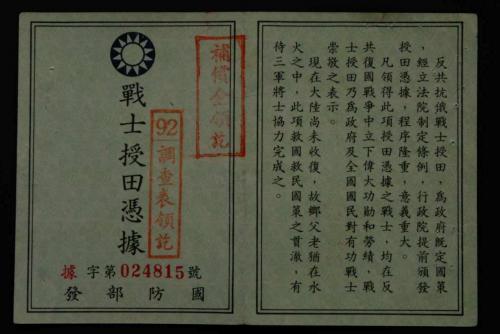 反共抗俄戰士授田，爲政府既定國策
，經立法院制定條例，行政院提前頒發
授田憑據，程序隆重，意義重大。
凡領得此項授田憑據之戰士，均在反
共復國戰爭中立下偉大功勛和勞績，戰
士授田乃爲政府及全國國民對有功戰士
崇敬之表示。
現在大陸尚未收復，故鄉父老猶在水
火之中，此項救國救民國策之貫澈，有
待三軍將士協力完成之。
補償金領訖
戰士授田憑據
92調查表領訖
據字第024815號
國防部發